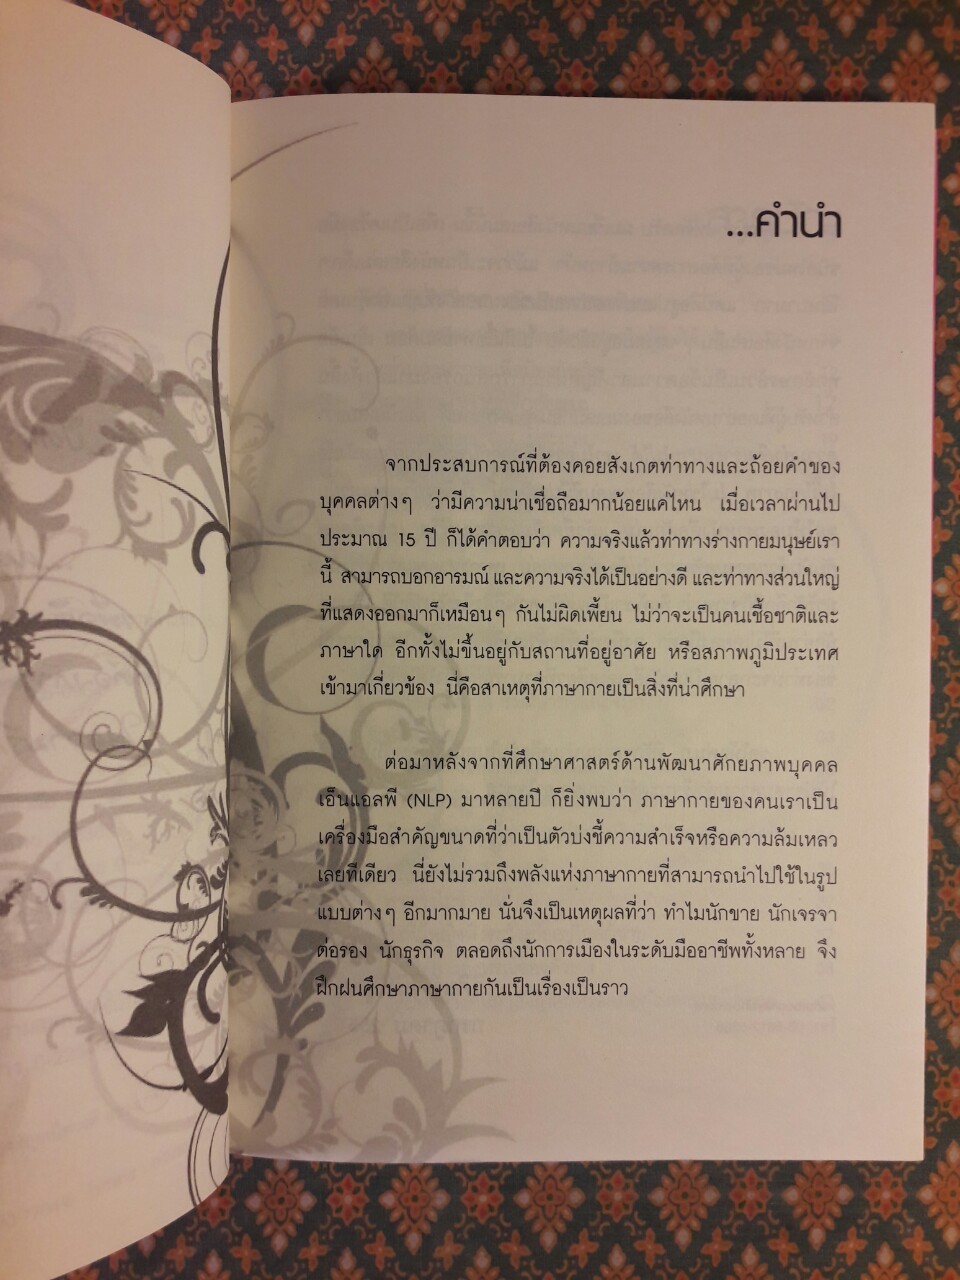 ...คำนำ
จากประสบการณ์ที่ต้องคอยสังเกตท่าทางและถ้อยคำของ
บุคคลต่างๆ ว่ามีความน่าเชื่อถือมากน้อยแค่ไหน เมื่อเวลาผ่านไป
ประมาณ 15 ปี ก็ได้คำตอบว่า ความจริงแล้วท่าทางร่างกายมนุษย์เรา
นี้ สามารถบอกอารมณ์ และความจริงได้เป็นอย่างดี และท่าทางส่วนใหญ่
ที่แสดงออกมาก็เหมือนๆ กันไม่ผิดเพี้ยน ไม่ว่าจะเป็นคนเชื้อชาติและ
ภาษาใด อีกทั้งไม่ขึ้นอยู่กับสถานที่อยู่อาศัย หรือสภาพภูมิประเทศ
เข้ามาเกี่ยวข้อง นี่คือสาเหตุที่ภาษากายเป็นสิ่งที่น่าศึกษา
ต่อมาหลังจากที่ศึกษาศาสตร์ด้านพัฒนาศักยภาพบุคคล
เอ็นแอลพี (NLP) มาหลายปี ก็ยิ่งพบว่า ภาษากายของคนเราเป็น
เครื่องมือสำคัญขนาดที่ว่าเป็นตัวบ่งชี้ความสำเร็จหรือความล้มเหลว
เลยทีเดียว นี่ยังไม่รวมถึงพลังแห่งภาษากายที่สามารถนำไปใช้ในรูป
แบบต่างๆ อีกมากมาย นั่นจึงเป็นเหตุผลที่ว่า ทำไมนักขาย นักเจรจา
ต่อรอง นักธุรกิจ ตลอดถึงนักการเมืองในระดับมืออาชีพทั้งหลาย จึง
ฝึกฝนศึกษาภาษากายกันเป็นเรื่องเป็นราว